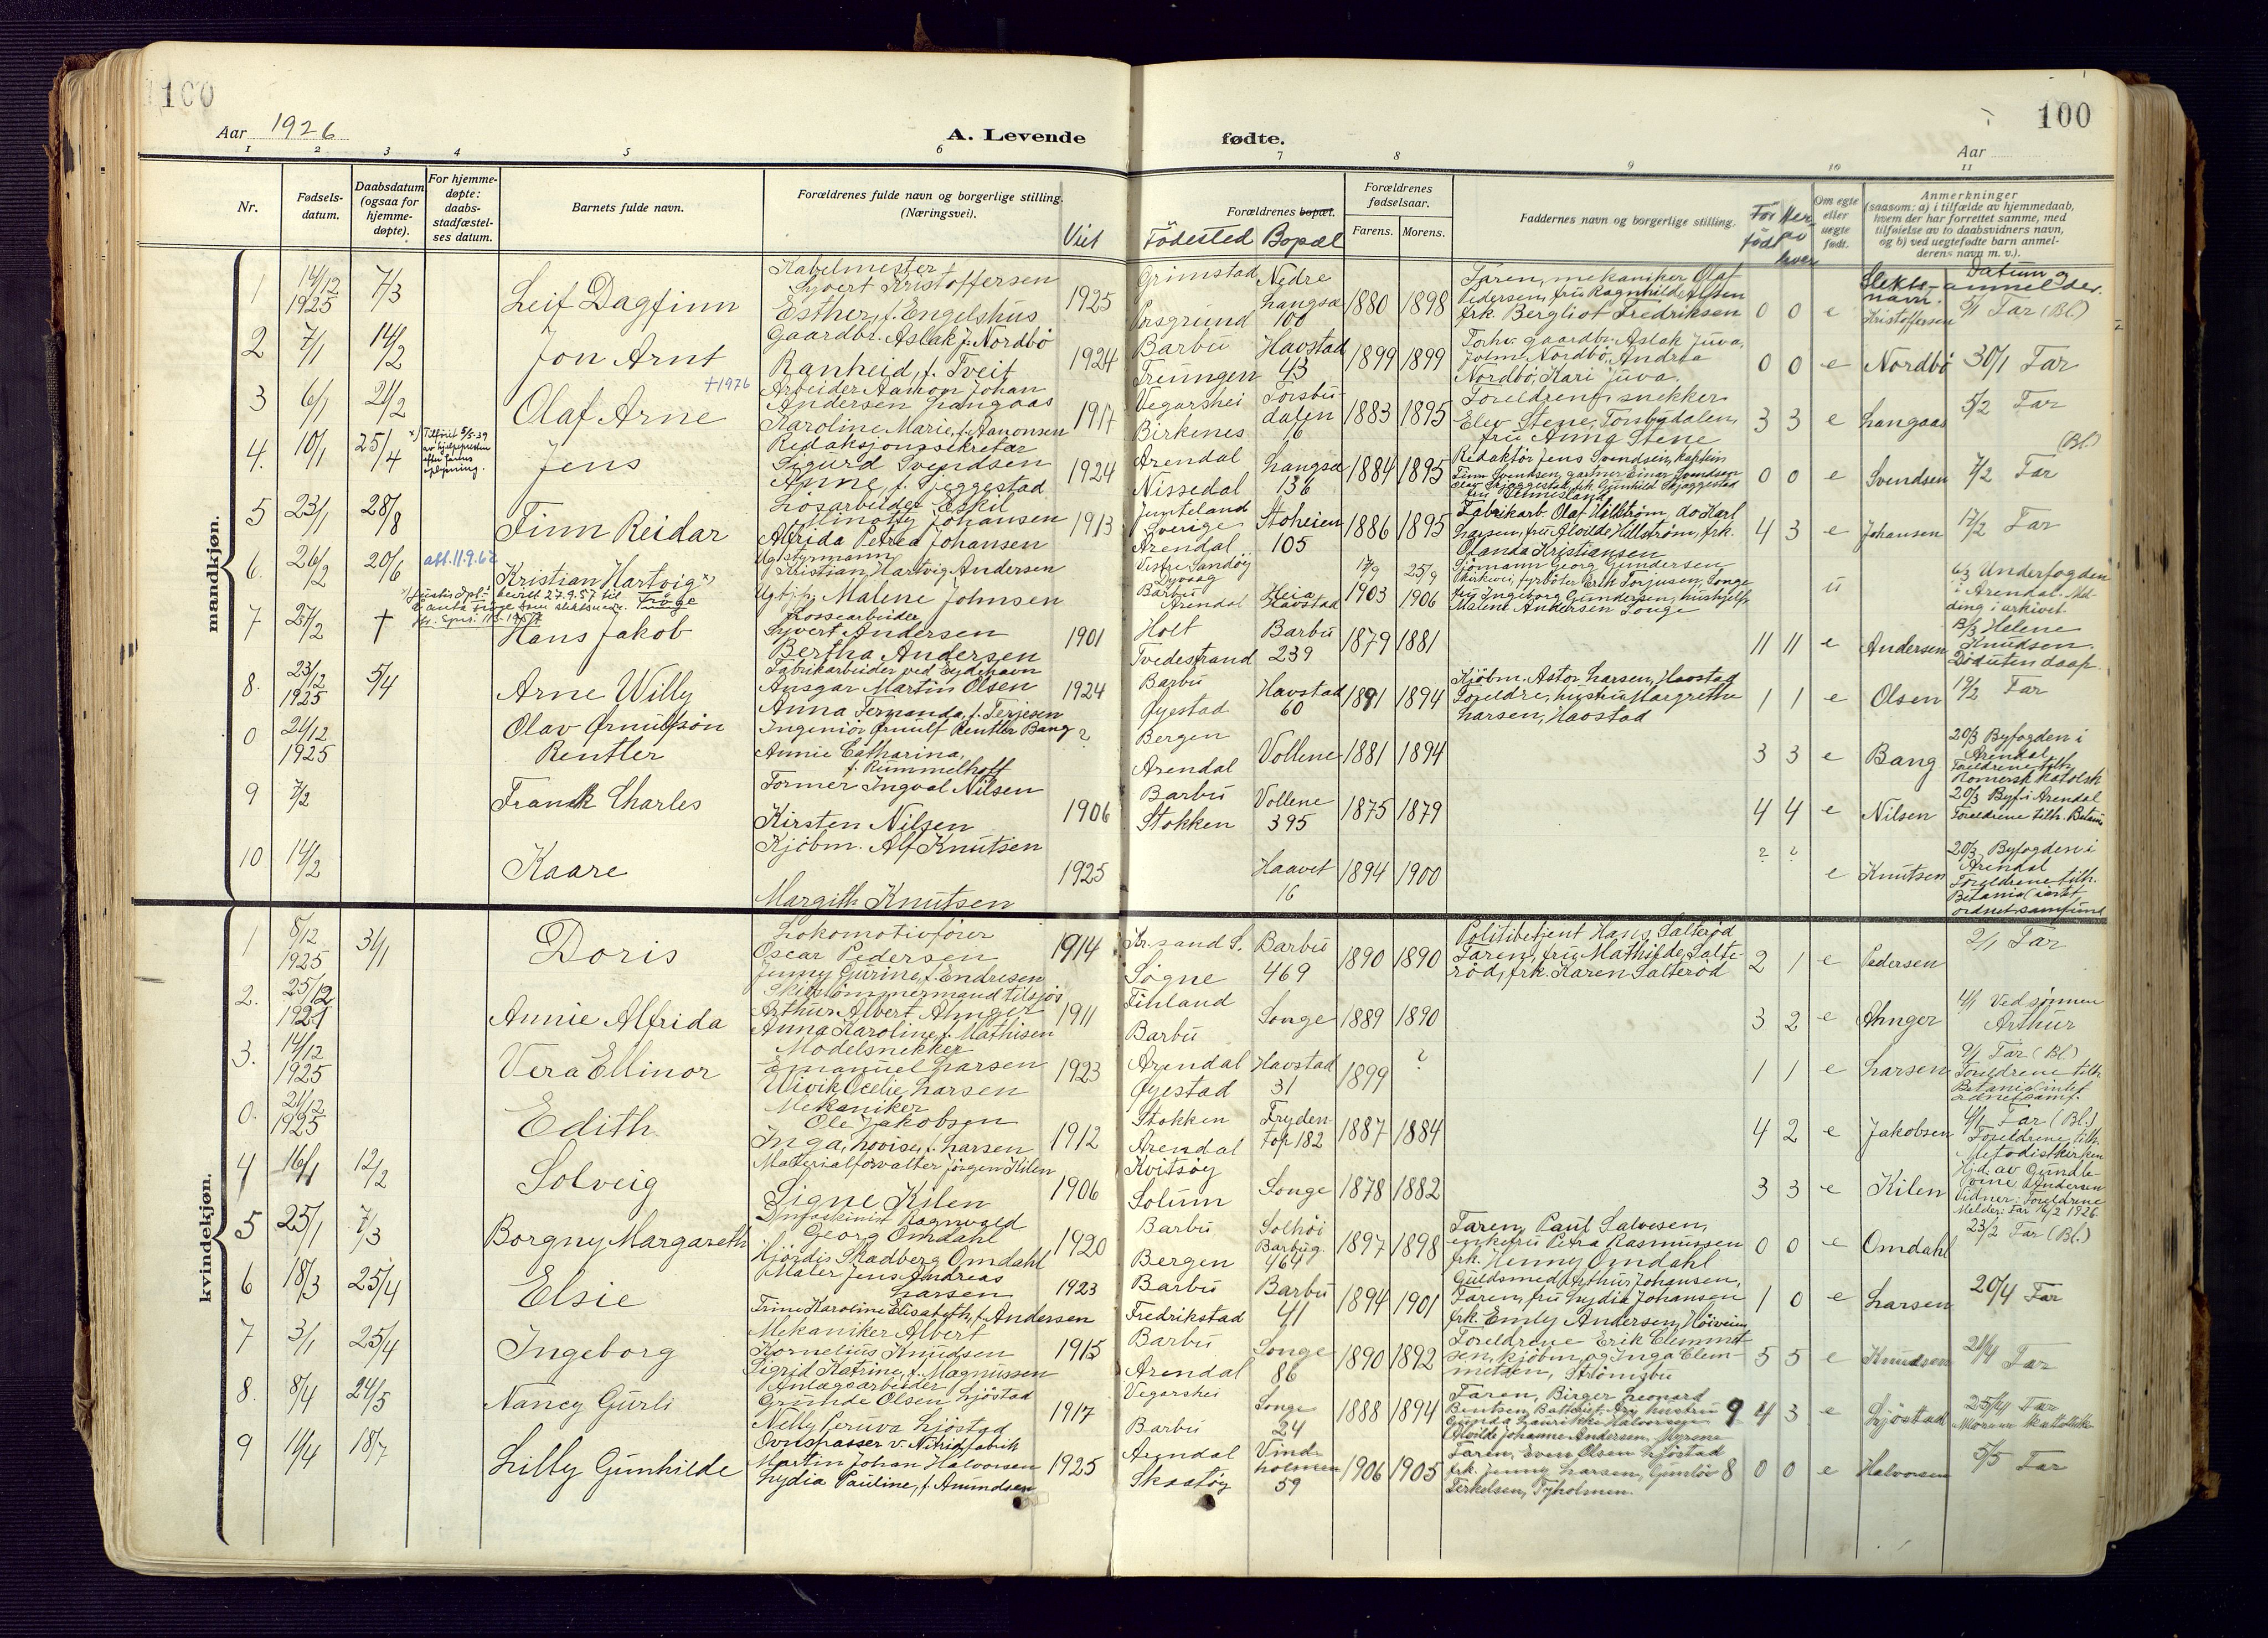 100
100
Aar 1926
A. Levende fødte.
Aar
1 2 3 4 5 6 7 8 9 10 11
Nr.
Fødsels-
datum.
Daabsdatum
(ogsaa for
hjemme-
døpte).
For hjemme-
døpte:
daabs-
stadfæstel-
ses datum.
Barnets fulde navn.
Forældrenes fulde navn og borgerlige stilling.
(Næringsvei).
Viet
Forældrenes bopæl.
Födested Bopæl
Forældrenes
fødselsaar.
Farens. Morens.
Faddernes navn og borgerlige stilling.
Før
født
Om egte
eller
uegte
født.
Anmerkninger
(saasom: a) i tilfælde av hjemmedaab,
hvem der har forrettet samme, med
tilføielse av to daabsvidners navn,
og b) ved uegtefødte barn anmel-
derens navn m. v.).
Slekts-
navn.
Datum og
anmelder.
mandkjøn.
1 14/12 1925 7/3
Leif Dagfinn
Kabelmester
Syvert Kristoffersen
Esther, f. Engelshus
1925
Grimstad
Porsgrund
Nedre
Langsæ
100
1880 1898
Faren, mekaniker Olaf
Pedersen, fru Ragnhild Olsen
frk. Bergliot Fredriksen
0 0 e Kristoffersen 5/1 Far (Bl.)
2 7/1 14/2
Jon Arnt
Gaardbr. Aslak J. Nordbö
Ranheid, f. Tveit
1924
Barbu
Treungen
Havstad
43
1899 1899
Forhv. gaardbr. Aslak Juva,
John Nordbö, Andrea
Nordbö, Kari Juva.
0 0 e Nordbö 30/1 Far
3 6/1 21/2
Olaf Arne
†1976
Arbeider Aamon Johan
Andersen Langaas
Karoline Marie, f. Aanonsen
1917
Vegarshei
Birkenes
Torsbu-
dalen
6
1883 1895
Foreldrene, snekker
Elev Stene, Torsbudalen,
fru Anna Stene
3 3 e Langaas 5/2 Far
4. 10/1 25/4
x) Tilføiet 5/5-39
Jens
Redaksjonssekretær
Sigurd Svendsen
Anne, f. Skjeggestad
1924
Arendal
Nissedal
Langsæ
136
1884 1895
Redaktör Jens Svendsen, kaptein
Finn Svendsen, gartner Einar Svendsen
0 0 e Svendsen 7/2 Far
(Bl.)
5 23/1 28/8
Finn Reidar
Lösarbeider Eskil
Johansen
Alfrida Petrea Johansen
1913
Jemteland
Sverige
Arendal
Stoheien
105
1886 1895
Fabrikarb. Olaf Hillström, do Karl
Larsen, fru Alvilde Hillström, frk.
Olanda Kristiansen
4 3 e Johansen 17/2 Far
6. 26/2 20/6
att. 11.9.62
Kristian Hartvig x)
Ug. styrmann
Kristian Hartvig Andersen
Ug. tj.p. Malene Johnsen
Vestre Sandöy
Dyvaag
Barbu
Arendal
Heia
Havstad
17/9 1903 25/9 1906
Sjömann Georg Gundersen
fyrböter Erik Torjusen, Songe
fru Ingeborg Gundersen, hushjelp
Malene Andersen Songe
u
6/3 Underfogden
i Arendal. Mel-
ding i arkivet
7 27/2 †
Hans Jakob
Lossearbeider
Syvert Andersen
Bertha Andersen
1901
Holt
Tvedestrand
Barbu
239
1879 1881
11 11 e Andersen
13/3 Helene
Knudsen.
Död uten daap.
8. 23/12 1925 5/4
Arne Willy
Fabrikarbeider ved Eydehavn
Ansgar Martin Olsen
Anna Fernanda, f. Terjesen
1924
Barbu
Öyestad
Havstad
60
1891 1894
Kjöbm. Astor Larsen, Havstad
Foreldre, hustru Margrethe
Larsen, Havstad
1 1 e Olsen 19/2 Far
0 21/12 1925
Olav Ørnulfsön
Rentler
Ingeniör Ørnulf Rentler Bang
Annie Catharina,
f. Rummelhoff
?
Bergen
Arendal
Vollene
1881 1894
3 3 e Bang
20/3 Byfogden i
Arendal
Foreldrene tilh.
Romersk katolsk
9 7/2
Frank Charles
Former Ingval Nilsen
Kirsten Nilsen
1906
Barbu
Stokken
Vollene
395
1875 1879
4 4 e Nilsen
20/3 Byf. i Arendal
Foreldrene tilh. Betania
10 14/2
Kaare
Kjöbm. Alf Knutsen
Margith Knutsen
1925
Haavet
16
1894 1900
? ? e Knutsen
20/3 Byfogden i
Arendal
Foreldrene tilh.
Betania (intet
ordnet samfund
kvindekjøn.
1 8/12 1925 31/1
Doris
Lokomotivförer
Oscar Pedersen
Jenny Gurine, f. Endresen
1914
Kr.sand S.
Sögne
Barbu
469
1890 1890
Politibetjent Hans Salteröd
Faren, fru Mathilde Salte-
röd, frk. Karen Salteröd
2 1 e Pedersen 2/1 Far
2. 25/12 1921
Annie Alfrida
Skibstömmermand tilsjös
Arthur Albert Ahnger
Anna Karoline f. Mathisen
1911
Finland
Barbu
Songe
1889 1890
3 2 e Ahnger
4/1 Ved sönnen
Arthur
3. 14/12 1925
Vera Ellinor
Modelsnekker
Emanuel Larsen
Vivik Ocelie Larsen
1923
Arendal
Öyestad
Havstad
31
1899 ?
1 1 e Larsen
9/1 Far (Bl)
Foreldrene tilh.
Betania (intet
ordnet samf.
0. 21/12 1925
Edith
Mekaniker
Ole Jakobsen
Inga, Lovise, f. Larsen
1912
Stokken
Arendal
Fryden-
top 182
1887 1884
4 2 e Jakobsen
4/1 Far (Bl.)
Foreldrene tilh.
Metodistkirken
4 16/1 12/2
Solveig
Materialforvalter Jörgen Kilen
Signe Kilen
1906
Kvitsöy
Solum
Songe
1878 1882
3 3 e Kilen
Hj.d. av Gunda
Andersen
Vidner: Foreldrene
Melder: Far 16/2 1926.
5 25/1 7/3
Borgny Margareth
Ragnvald
Georg Omdahl
Hjördis Skadberg Omdahl
1920
Barbu
Bergen
Solhöi
Barbug.
464
1897 1898
Faren, Paul Salvesen,
enkefru Petra Rasmussen
frk. Henny Omdahl
0 0 e Omdahl 23/2 Far (Bl.)
6 18/3 25/4
Elsie
Maler Jens Andreas
Larsen
Trine Karoline Elisabeth, f. Andersen
1923
Barbu
Fredrikstad
Barbu
41
1894 1901
Guldsmed Arthur Johansen,
Faren, fru Lydia Johansen
frk. Emly Andersen, Höiveien
1 0 e Larsen 20/4 Far
7 3/1 25/4
Ingeborg
Mekaniker Albert
Kornelius Knudsen
Sigrid Katrine, f. Magnussen
1915
Barbu
Arendal
Songe
86
1890 1892
Foreldrene Erik Clemmet-
sen, kjöbm. og Inga Clem-
metsen, Strömsbu
5 5 e Knudsen 21/4 Far
8. 8/4 24/5
Nancy Gurli
Anlægsarbeider
Grunde Olsen Ljöstad
Nelly Peruva Ljöstad
1917
Vegarshei
Barbu
Songe
24
1888 1894
Faren, Birger Leonard
Bentsen, hustru
Gunda Laurikke Halvorsen
Alvilde Johanne Andersen, Myrene
9 4 3 e Ljöstad 25/4 Far
9 11/4 18/7
Lilly Gunhilde
Ovnspasser v. Nitridfabrik
Martin Johan Halvorsen
Lydia Pauline, f. Amundsen
1925
Arendal
Skaatöy
Vind-
holmen
59
1906 1905
Faren, Even Olsen Ljöstad
frk. Jenny Larsen, Gunlöv
Terkelsen, Tyholmen.
8 0 0 e Halvorsen 5/5 Far